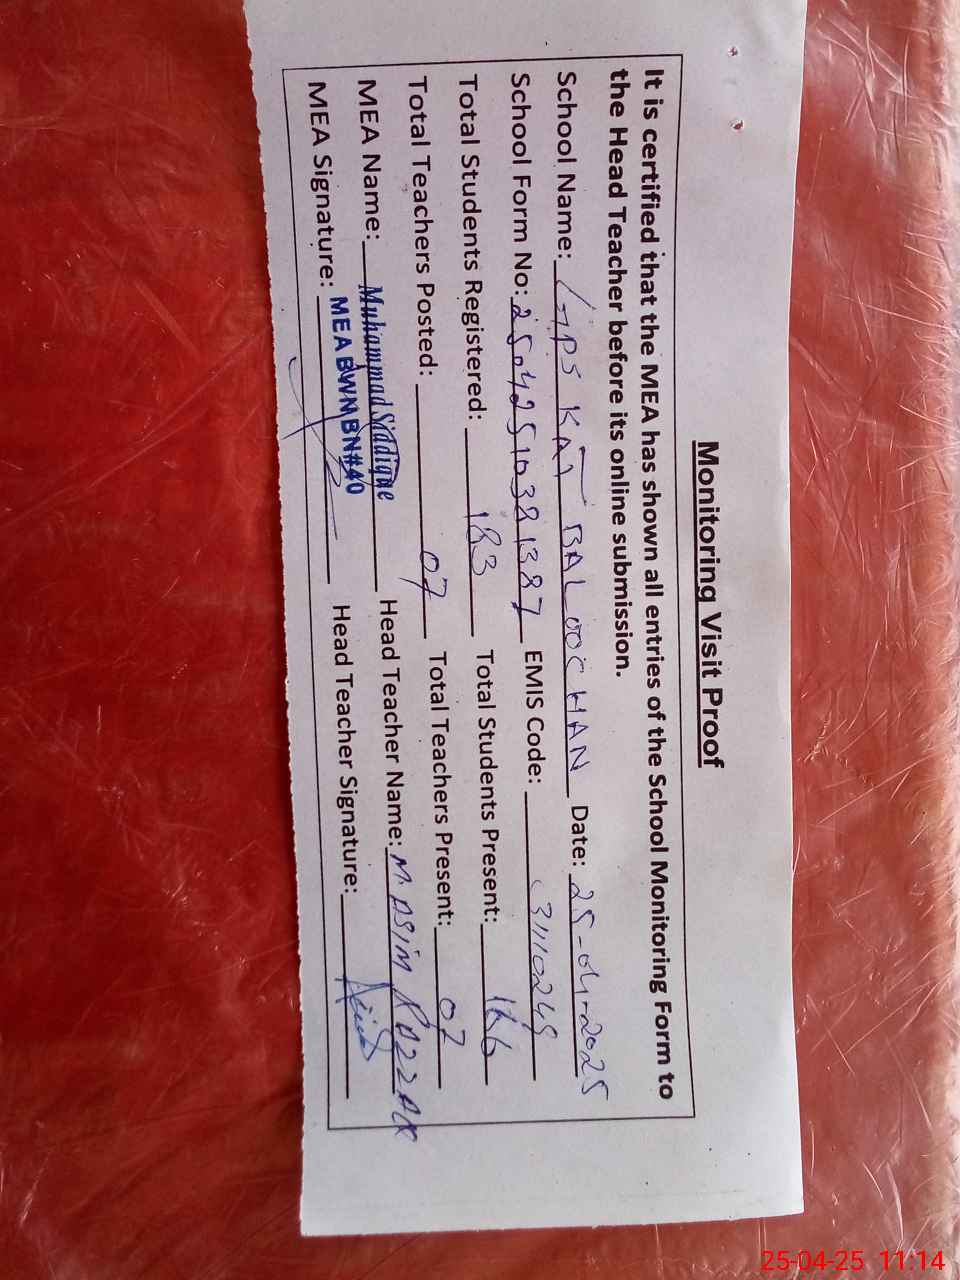 Monitoring Visit Proof
It is certified that the MEA has shown all entries of the School Monitoring Form to
the Head Teacher before its online submission.
School Name: GPS KAT BALOOCHAN Date: 25-04-2025
School Form No: 25042510381387 EMIS Code: 31110249
Total Students Registered: 183 Total Students Present: 166
Total Teachers Posted: 07 Total Teachers Present: 07
MEA Name: Muhammad Siddique Head Teacher Name: M. ASIM RAZZAQ
MEA Signature: MEA BWN BN#40 Head Teacher Signature:
25-04-25 11:14